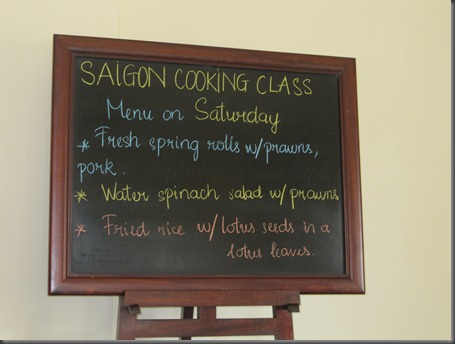 SAIGON COOKING CLASS
Menu on Saturday
* Fresh spring rolls w/prawns,
pork.
* Water spinach salad w/ prawns
* Fried rice w/ lotus seeds in a
lotus leaves.